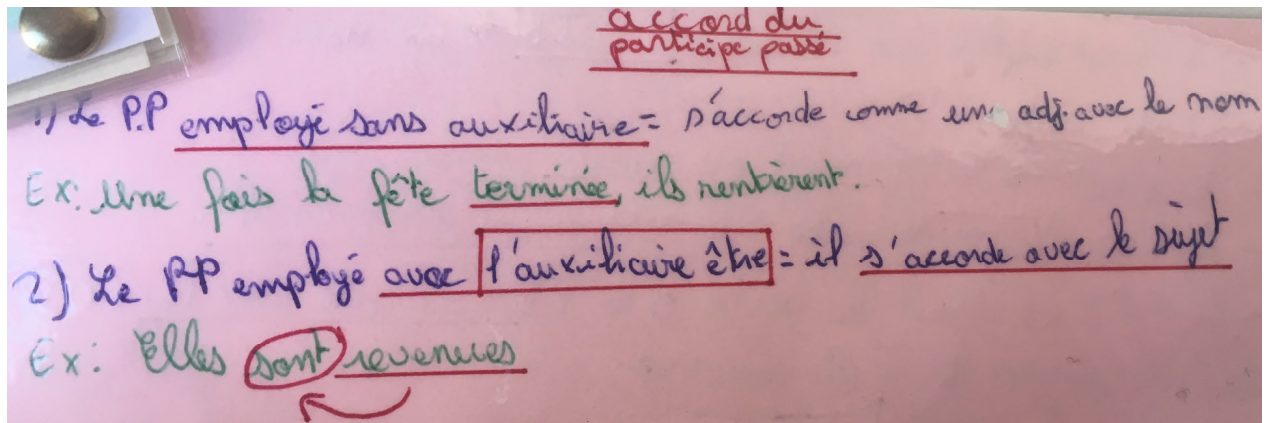 accord du
participe passé
1) Le P.P employé sans auxiliaire = s'accorde comme un adj. avec le nom
Ex: Une fois la fête terminée, ils rentrèrent.
2) Le PP employé avec l'auxiliaire être = il s'accorde avec le sujet
Ex: Elles sont revenues